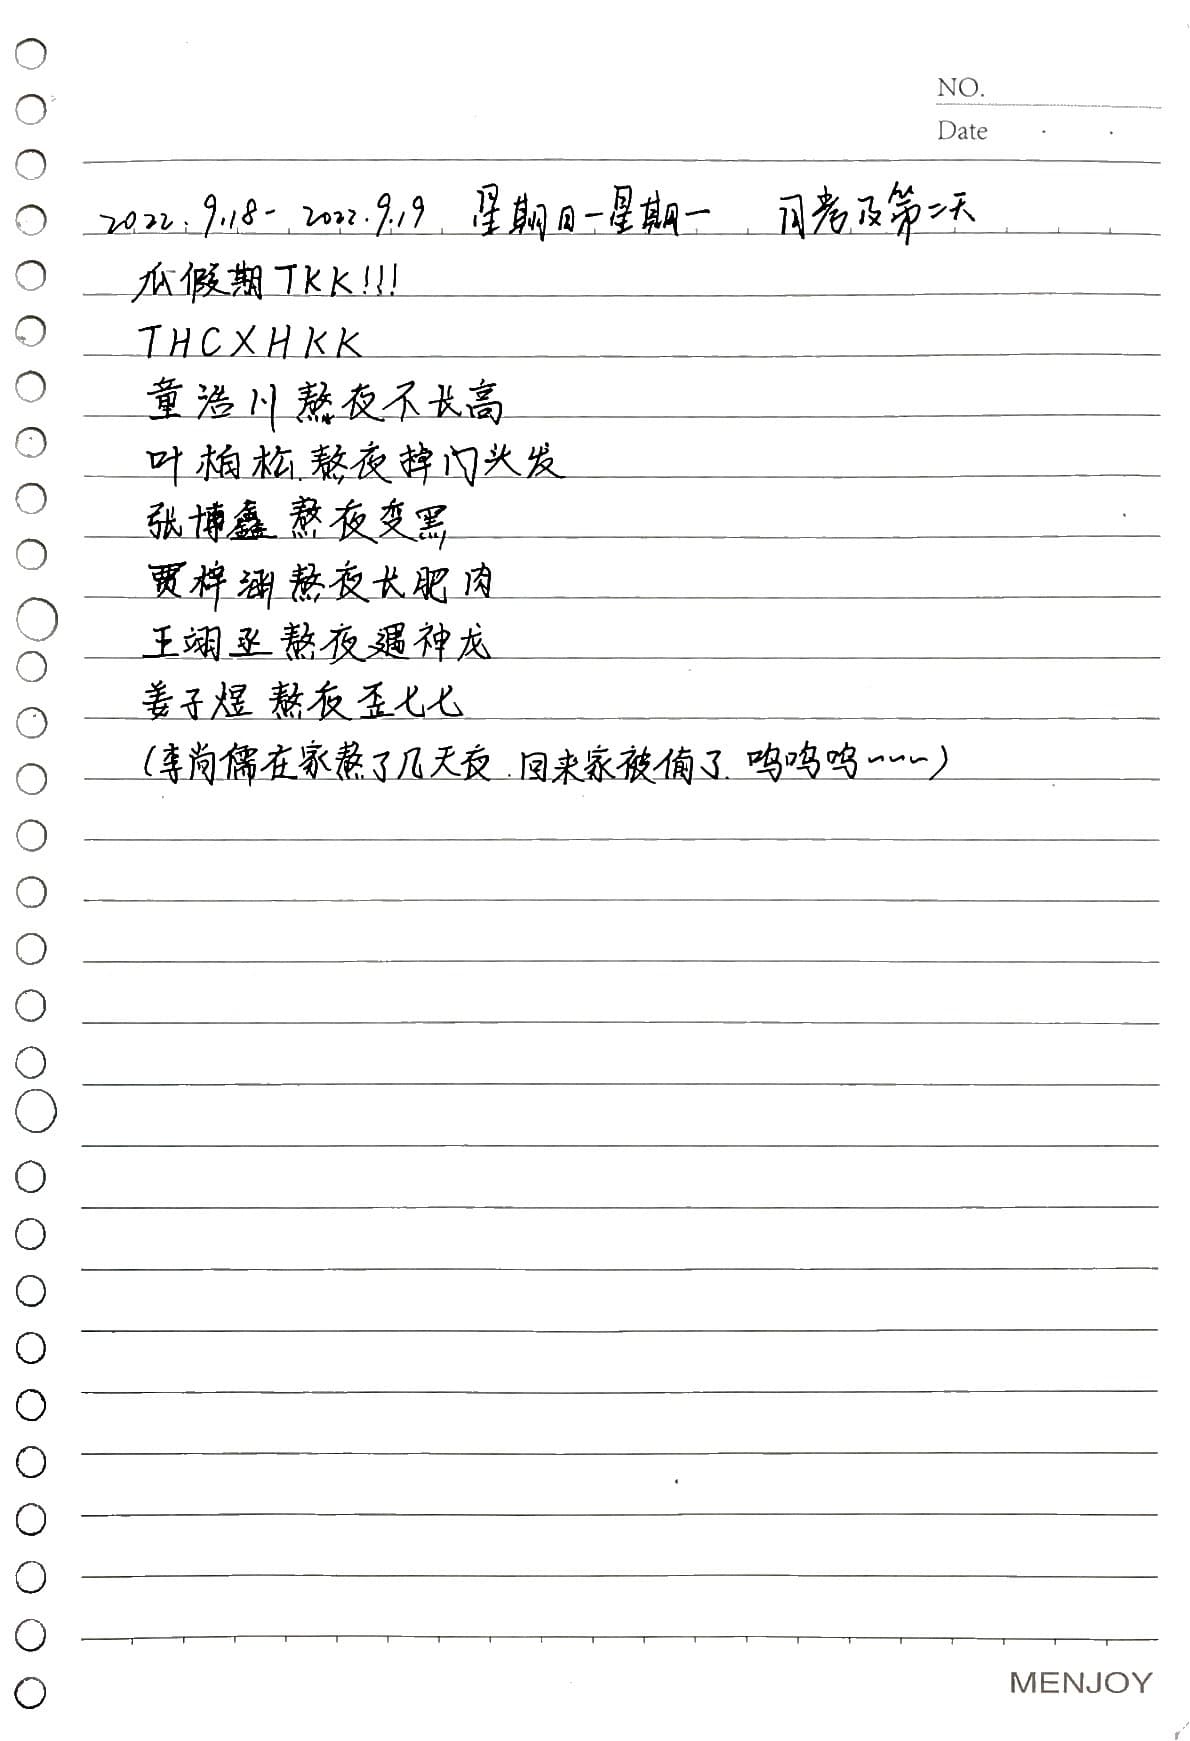 NO.
Date
2022.9.18- 2022.9.19 星期日-星期一 月考及第二天
瓜假期TKK!!!
THCXHKK
童浩川熬夜不长高
叶柏松熬夜掉门头发
张博鑫熬夜变黑
贾梓涵熬夜长肥肉
王翊丞熬夜遇神龙
姜子煜熬夜歪七七
(李尚儒在家熬了几天夜.回来家被偷了.呜呜呜~~~)
MENJOY